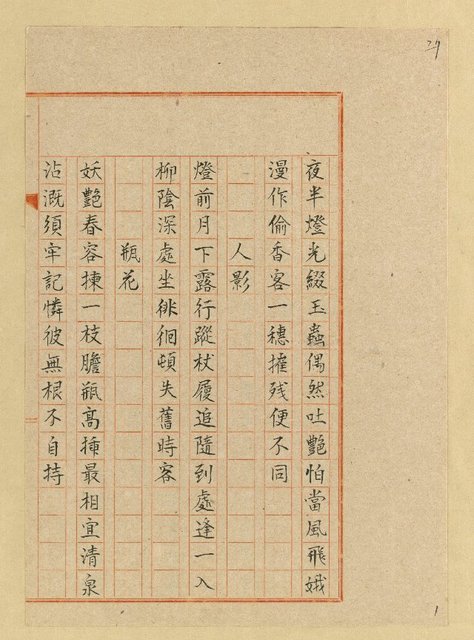 29
夜半燈光綴玉蟲偶然吐艷怕當風飛娥
漫作偷香客一穗摧残便不同
人影
燈前月下露行蹤杖履追隨到處逢一入
柳陰深處坐徘徊頓失舊時容
瓶花
妖艷春容揀一枝膽瓶高揷最相宜清泉
沾溉須牢記憐彼無根不自持
1